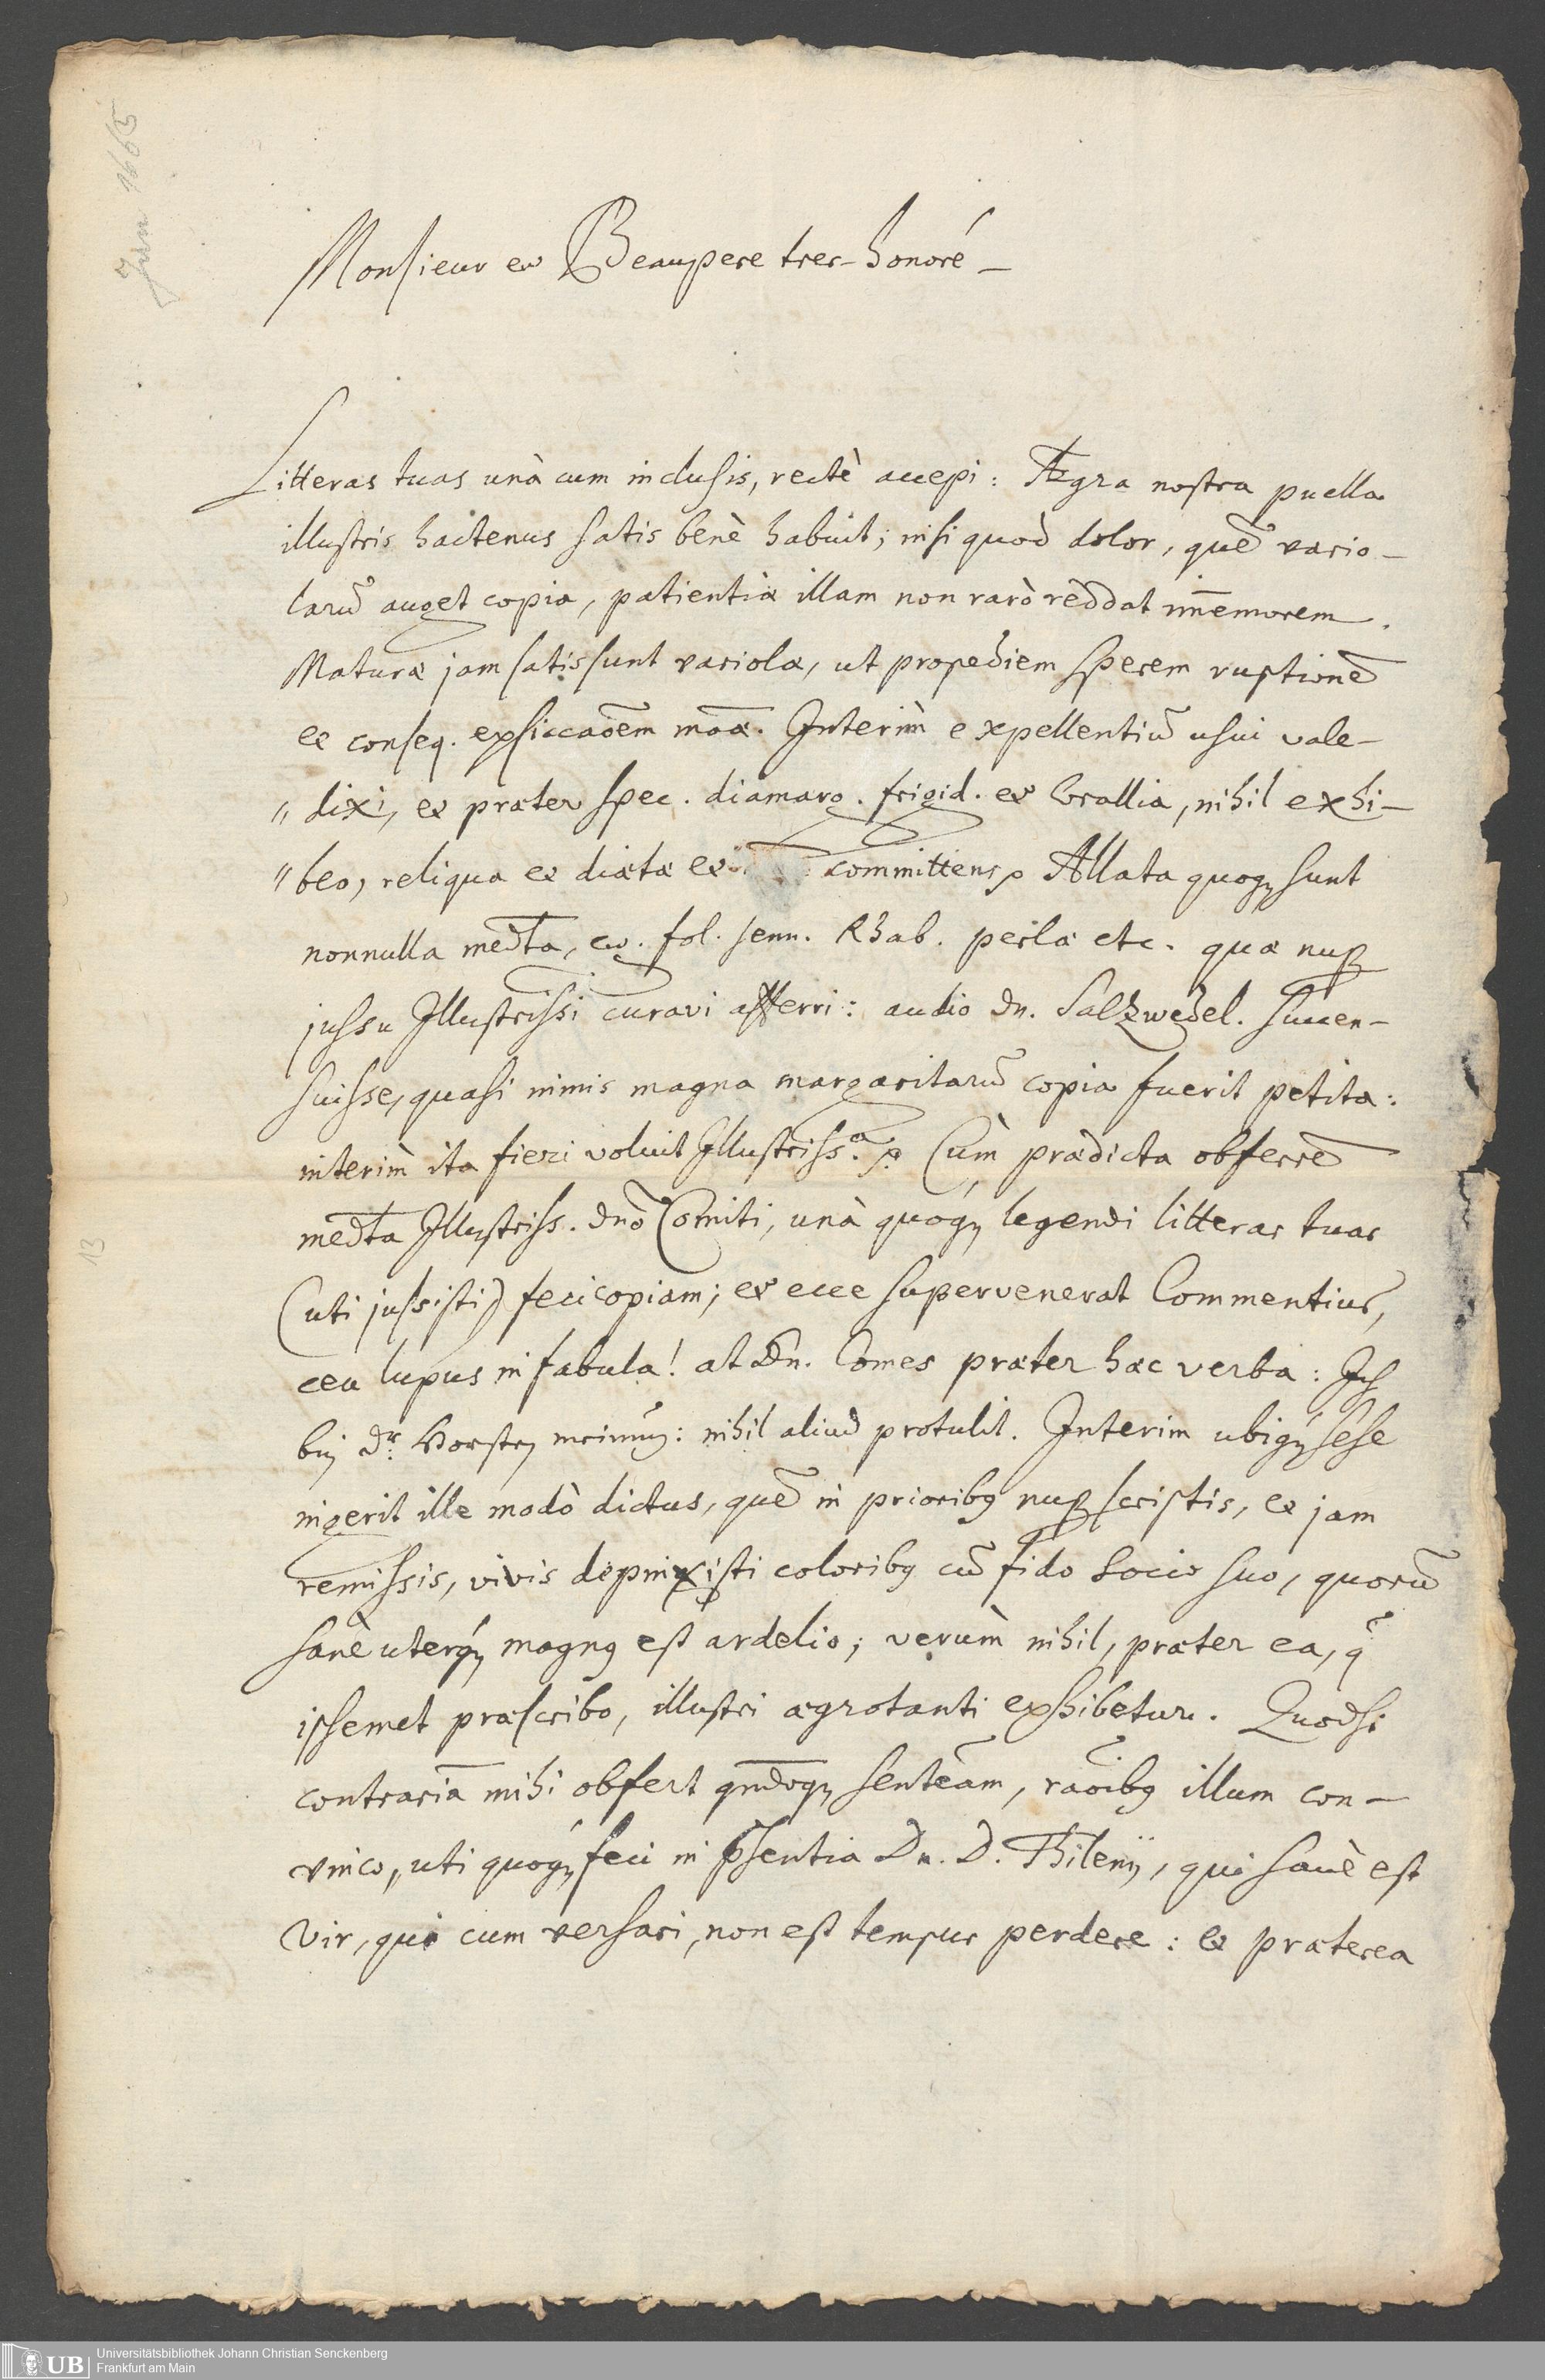 Jun 1665
Monsieur et Beaupere tres-honoré
Litteras tuas unà cum inclusis, rectè accepi: Ægra nostra puella
illustris hactenus satis benè habuit; nisi quod dolor, quē vario-
larū auget copia, patientiæ illam non rarò reddat im̄emorem.
Maturæ jam satis sunt variolæ, ut propediem sperem ruptionē
et conseq. exsiccaōem Interim expellentiū usui vale-
" dixi, et præter spec. diamarg. frigid. et Corallia, nihil exhi-
" beo, reliqua et diætæ et committens Allata quoq sunt
nonnulla medta, fol. senn. Rhab. perlæ etc. quæ nup
jussu Illustrissi curavi afferri: audio Dn. Salzwedel. succen-
suisse, quasi nimis magna margaritarū copia fuerit petita:
interim ita fieri voluit Illustriss.a Cùm prædicta obferrē
medta Illustriss. Dnō Comiti, unà quoq legendi litteras tuas
(uti jussisti) feci copiam; et ecce supervenerat Commentius,
ceu lupus in fabula! at Dn. Comes præter hæc verba: Ich
bin Dr. Horsten meinung: nihil aliud protulit. Interim ubiq sese
ingerit ille modò dictus, quē in priorib9 nup scriptis, et jam
remissis, vivis depinxisti colorib9 cū fido socio suo, quorū
sanè uterq magn9 est ardelio; verùm nihil, præter ea, q
ipsemet præscribo, illustri ægrotanti exhibetur. Quodsi
contrariā mihi obfert qn̄doq sentēam, raōib9 illum con-
vinco, uti quoq feci in psentia Dn. D. Thilenij, qui sanè est
Vir, qui cum versari, non est tempus perdere: et præterea
13
Universitätsbibliothek Johann Christian Senckenberg
Frankfurt am Main
UB